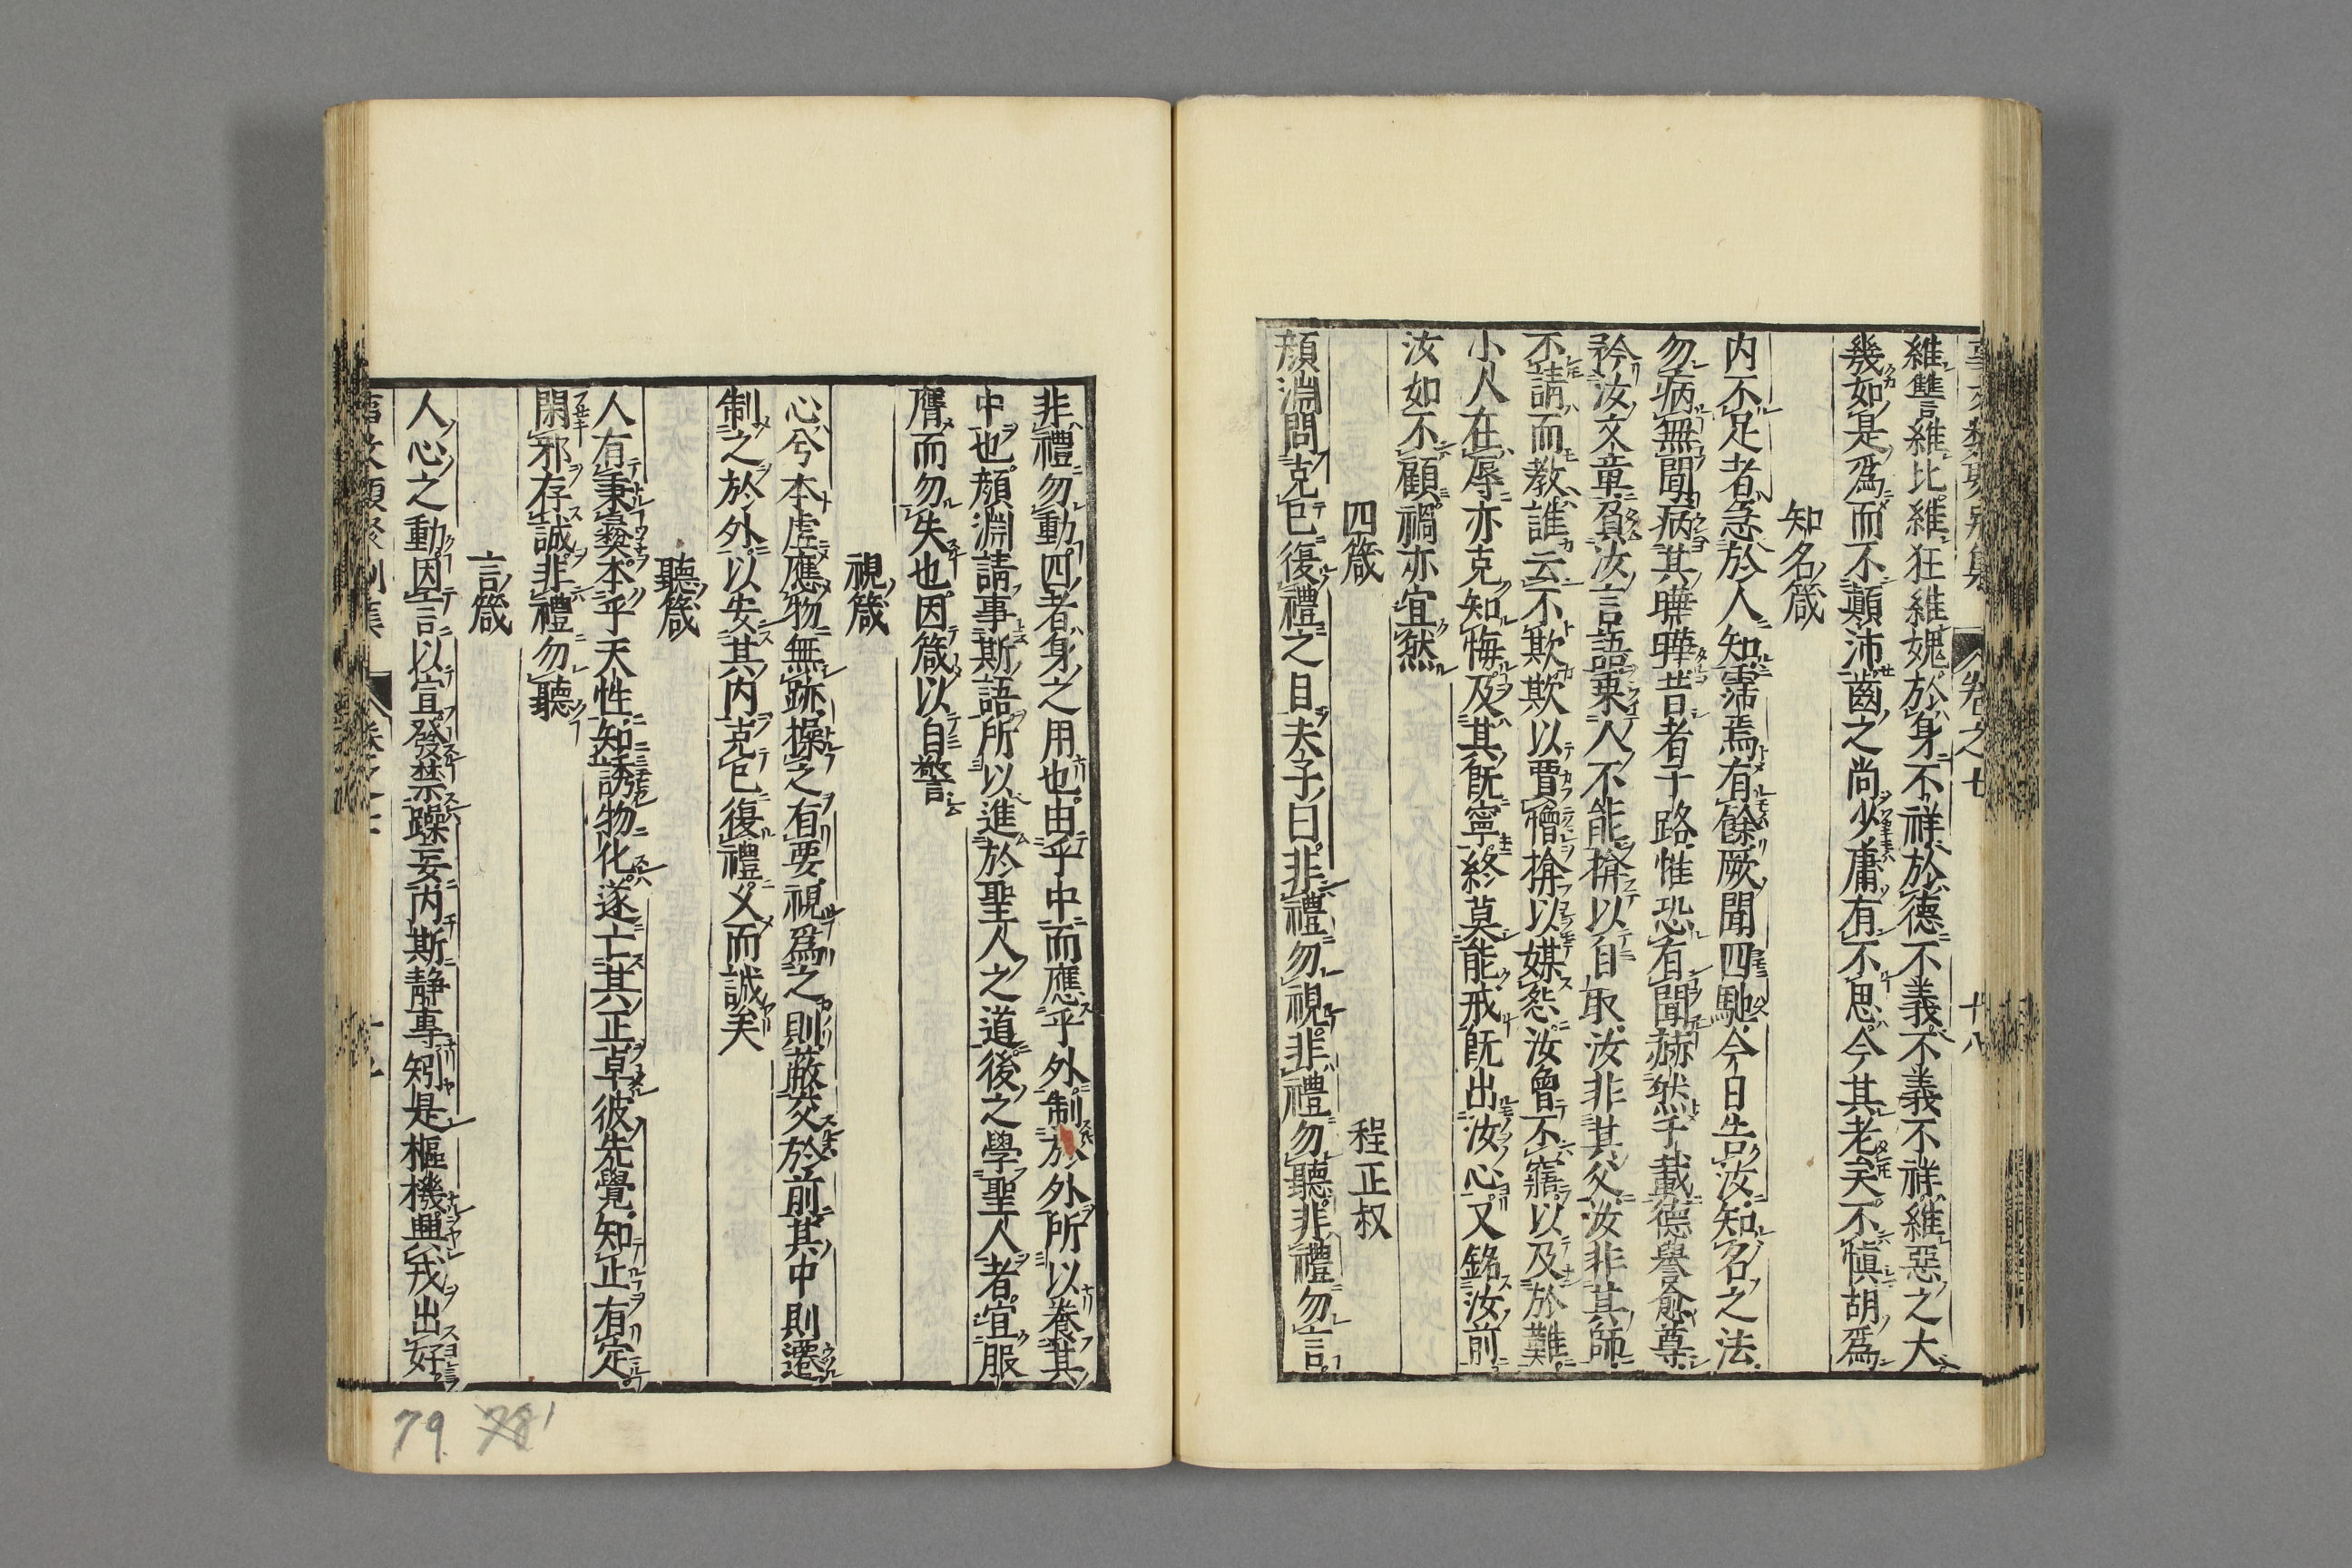 維讐維比維狂維媿於身不祥於德不義不義不祥維惡之大
幾如是爲而不顚沛齒之尚少庸有不思今其老矣不愼胡爲
知名箴
内不足者急於人知霈焉有餘厥聞四馳今日告汝知名之法
勿病無聞病其曄曄昔者子路惟恐有聞赫然千載德譽愈尊
矜汝文章負汝言語乗人不能揜以自取汝非其父汝非其師
不請而教誰云不欺欺以賈憎揜以媒怨汝曾不寤以及於難
小人在辱亦克知悔及其既寧終莫能戒既出汝心又銘汝前
汝如不顧禍亦宜然
四箴 程正叔
顏淵問克己復禮之目夫子曰非禮勿視非禮勿聽非禮勿言
非禮勿動四者身之用也由乎中而應乎外制於外所以養其
中也顏淵請事斯語所以進於聖人之道後之學聖人者宜服
膺而勿失也因箴以自警
視箴
心兮本虛應物無跡操之有要視爲之則蔽交於前其中則遷
制之於外以安其内克己復禮乆而誠矣
聽箴
人有秉彝本乎天性知誘物化遂亡其正卓彼先覺知止有定
閑邪存誠非禮勿聽
言箴
人心之動因言以宣發禁躁妄内斯静專矧是樞機興戎出好
卷之七
十八
79 78